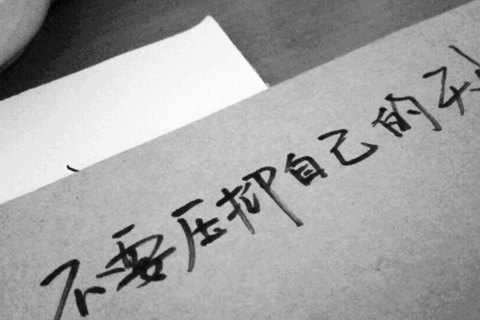 不要压抑自己的天